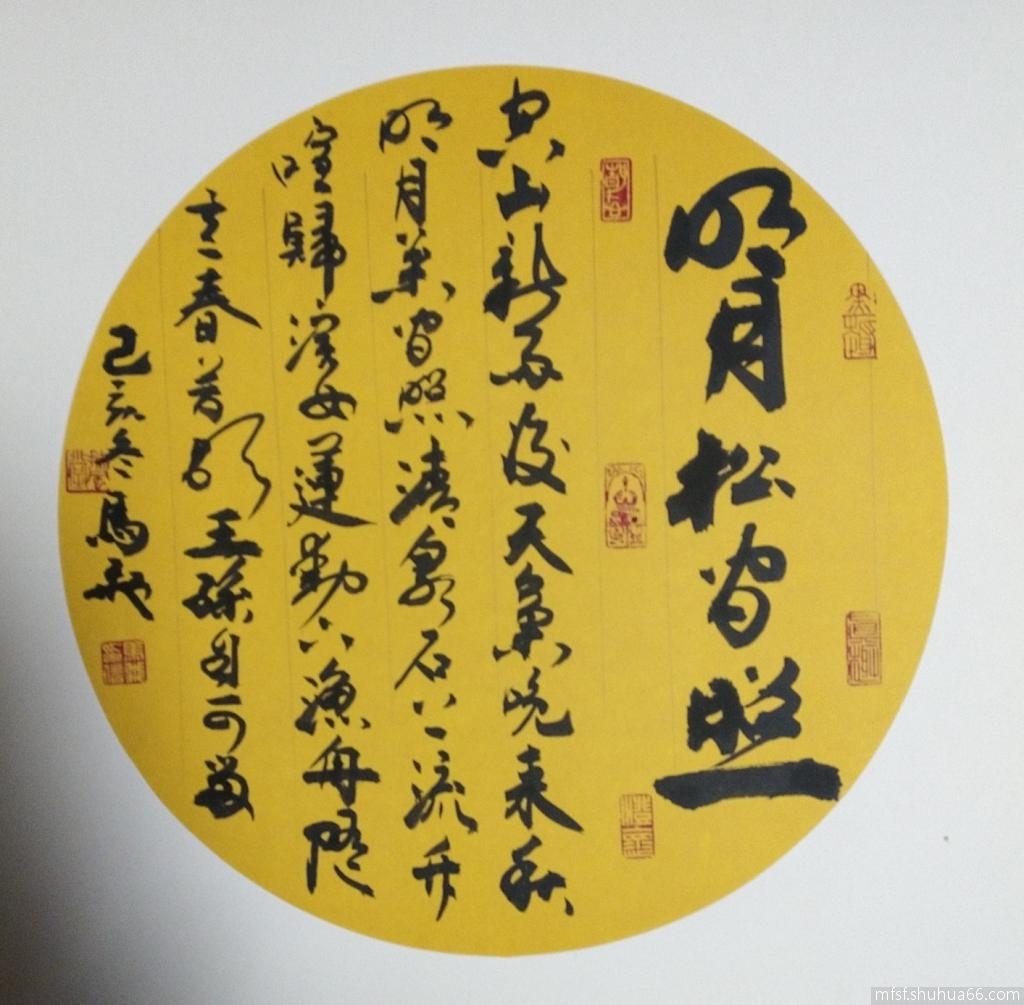 明月松间照
空山新雨後天氣晚来秋
明月松间照清泉石上流竹
喧歸浣女蓮動下漁舟随
意春芳歇王孫自可留
己亥冬馬
mfsf.shuhua66.com